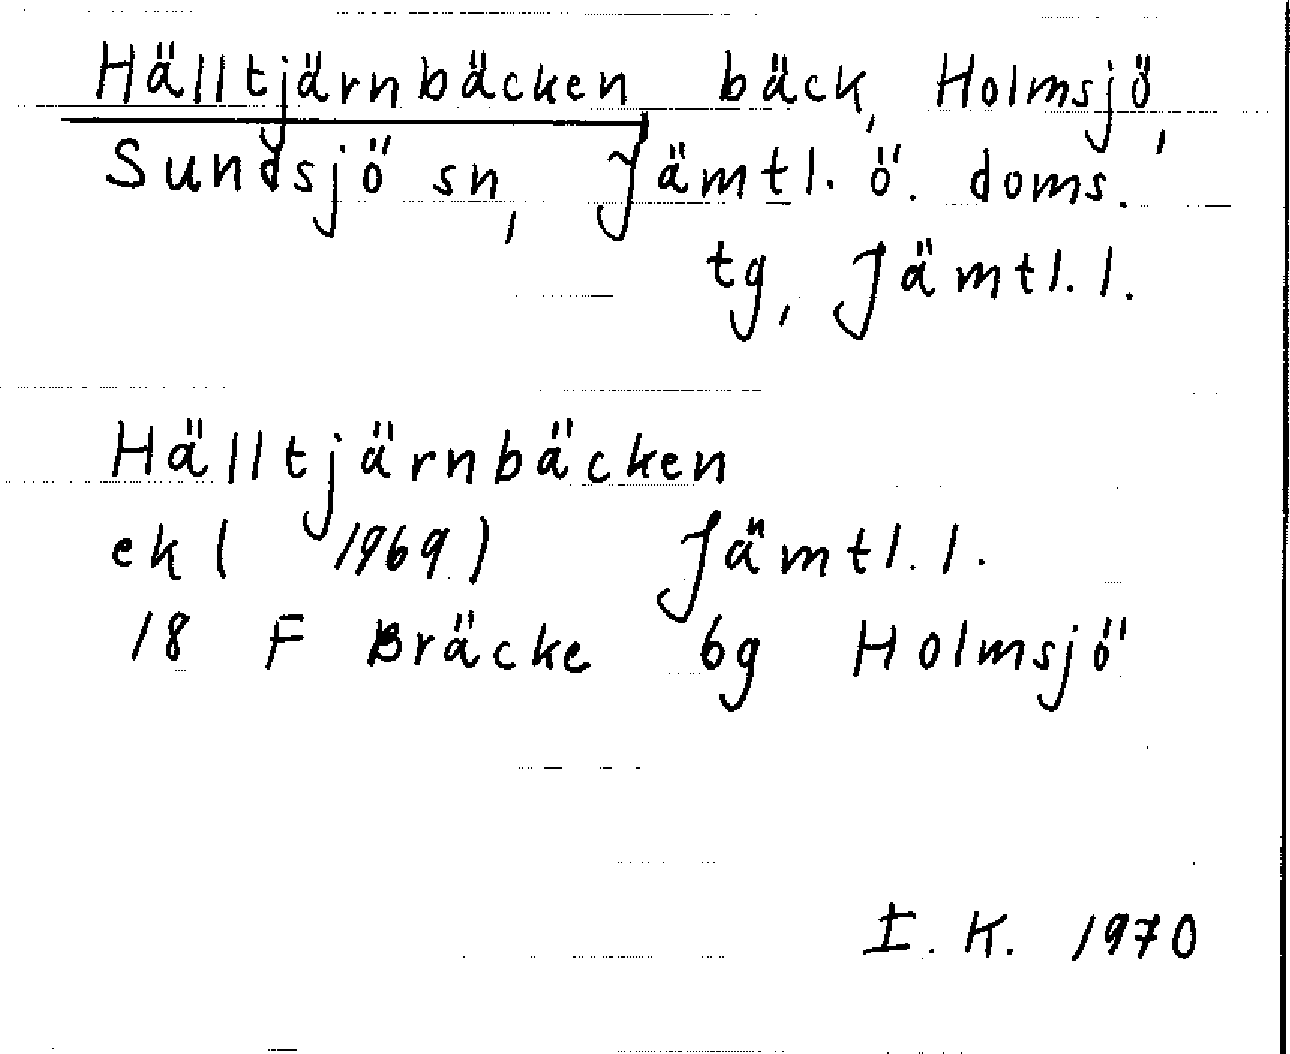 Hälltjärnbäcken bäck, Holmsjö,
Sundsjö sn, Jämtl. ö. doms.
tg, Jämtl. l.
Hälltjärnbäcken
ek ( 1969 ) Jämtl. l.
18 F Bräcke 6g Holmsjö
I. K. 1970